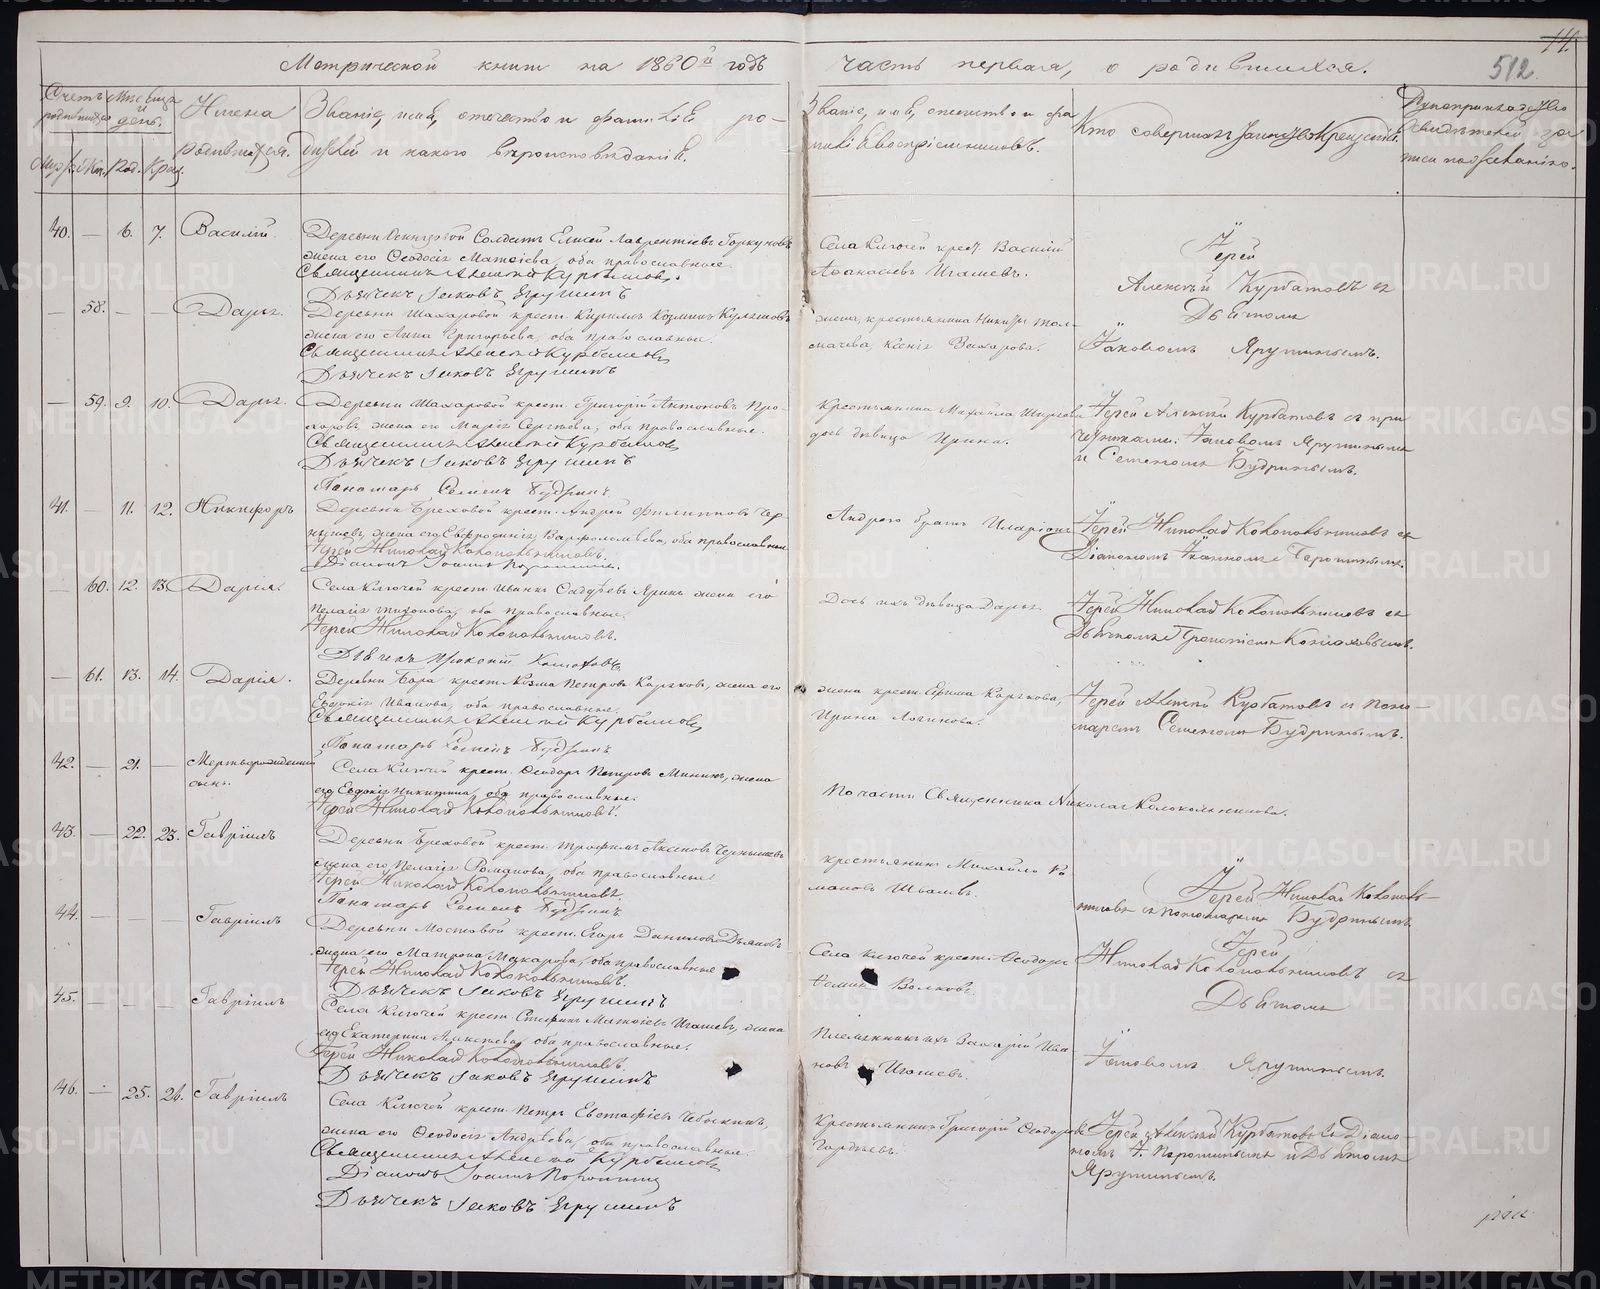 Метрической книги на 1860й годъ
часть первая, о родившихся.
14.
512
Счетъ родившихся
Мѣсяцъ и день.
Имена родившихся.
Званіе, имя, отчество и фамилія родителей и какого вѣроисповѣданія.
Званіе, имя, отчество и фамилія восприемниковъ.
Кто совершалъ таинство крещенія.
Рукоприкладство свидѣтелей записи по желанію.
Муж. Жен. Род. Крещ.
40. — 6. 7. Василій.
Деревни Солдатъ Елисей Лаврентіевъ Горкуновъ
жена его Ѳеодосія Матвѣева, оба православные
Священникъ Алексѣй Курбатовъ.
Дьячекъ Іаковъ Ярушинъ
Села Ключей крест. Василій
Аѳанасьевъ Игашевъ.
Іерей
Алексѣй Курбатовъ съ
Дьячкомъ
Іаковомъ Ярушинымъ.
— 58. — — Дарья.
Деревни Шахаровой крест. Кирилъ Козминъ Кулешовъ
жена его Анна Григорьева, оба православные.
Священникъ Алексѣй Курбатовъ
Дьячекъ Іаковъ Ярушинъ
жена, крестьянина Никиты Тол-
мачева, Ксенія Захарова.
— 59. 9. 10. Дарья.
Деревни Шахаровой крест. Григорій Антоновъ Про-
хоровъ, жена его Марія Сергѣева, оба православные.
Священникъ Алексѣй Курбатовъ
Дьячекъ Іаковъ Ярушинъ
Панамарь Семенъ Будринъ
Крестьянина Михаила
дочь дѣвица Ирина.
Іерей Алексѣй Курбатовъ съ при
четниками: Іаковомъ Ярушинымъ
и Семеномъ Будринымъ.
41. — 11. 12. Никифоръ
Деревни Бреховой крест. Андрей Филипповъ Чер-
нышевъ, жена его Евфросинія Варфоломѣева, оба православные
Іерей Николай Колокольниковъ.
Діаконъ Іоаннъ
Андрея братъ Иларіонъ
Іерей Николай Колокольниковъ съ
Діакономъ Іоанномъ
— 60. 12. 13. Дарія.
Села Ключей крест. Иванъ жена его
Пелагія оба православные.
Іерей Николай Колокольниковъ.
Дьячекъ Прокопій
Дочь ихъ дѣвица Дарья.
Іерей Николай Колокольниковъ съ
Дьячкомъ Прокопіемъ
— 61. 13. 14. Дарія.
Деревни Бора крест. Козма Петровъ Каргаковъ, жена его
Евдокія Иванова, оба православные.
Священникъ Алексѣй Курбатовъ
Панамарь Семенъ Будринъ
жена крест. Ефима
Ирина Логинова.
Іерей Алексѣй Курбатовъ съ поно-
маремъ Семеномъ Будринымъ.
42. — 21. — Мертворожденный
сынъ.
Села Ключей крест. Ѳеодоръ Петровъ Мининъ, жена
его Евдокія Никитина, оба православные.
Іерей Николай Колокольниковъ.
По части Священника Николая Колокольникова.
43. — 22. 23. Гавріилъ
Деревни Бреховой крест. Трофимъ Аксеновъ Чернышевъ
жена его Пелагія Романова, оба православные
Іерей Николай Колокольниковъ
Панамарь Семенъ Будринъ
крестьянинъ Михайло Ро
мановъ
Іерей Николай Колоколь-
никовъ съ пономаремъ Будринымъ.
44. — — — Гавріилъ
Деревни Мостовой крест. Егоръ Даниловъ Дьяковъ
жена его Матрона Макарова, оба православные
Іерей Николай Колокольниковъ.
Дьячекъ Іаковъ Ярушинъ
Села Ключей крест. Ѳеодоръ
Волковъ.
Іерей
Николай Колокольниковъ съ
Дьячкомъ
45. — — — Гавріилъ
Села Ключей крест. Стефанъ Матвѣевъ Игашевъ, жена
его Екатерина оба православные.
Іерей Николай Колокольниковъ.
Дьячекъ Іаковъ Ярушинъ
Племянникъ ихъ Захарій Ива
новъ Игашевъ.
Іаковомъ Ярушинымъ.
46. — 25. 26. Гавріилъ
Села Ключей крест. Петръ Евстафіевъ Чебыкинъ,
жена его Ѳеодосія Андреева, оба православные.
Священникъ Алексѣй Курбатовъ
Діаконъ Іоаннъ
Дьячекъ Іаковъ Ярушинъ
Крестьянинъ Григорій Ѳеодоровъ
Гордѣевъ.
Іерей Алексѣй Курбатовъ съ Діако-
номъ І. и Дьячкомъ
Ярушинымъ.
METRIKI.GASO-URAL.RU